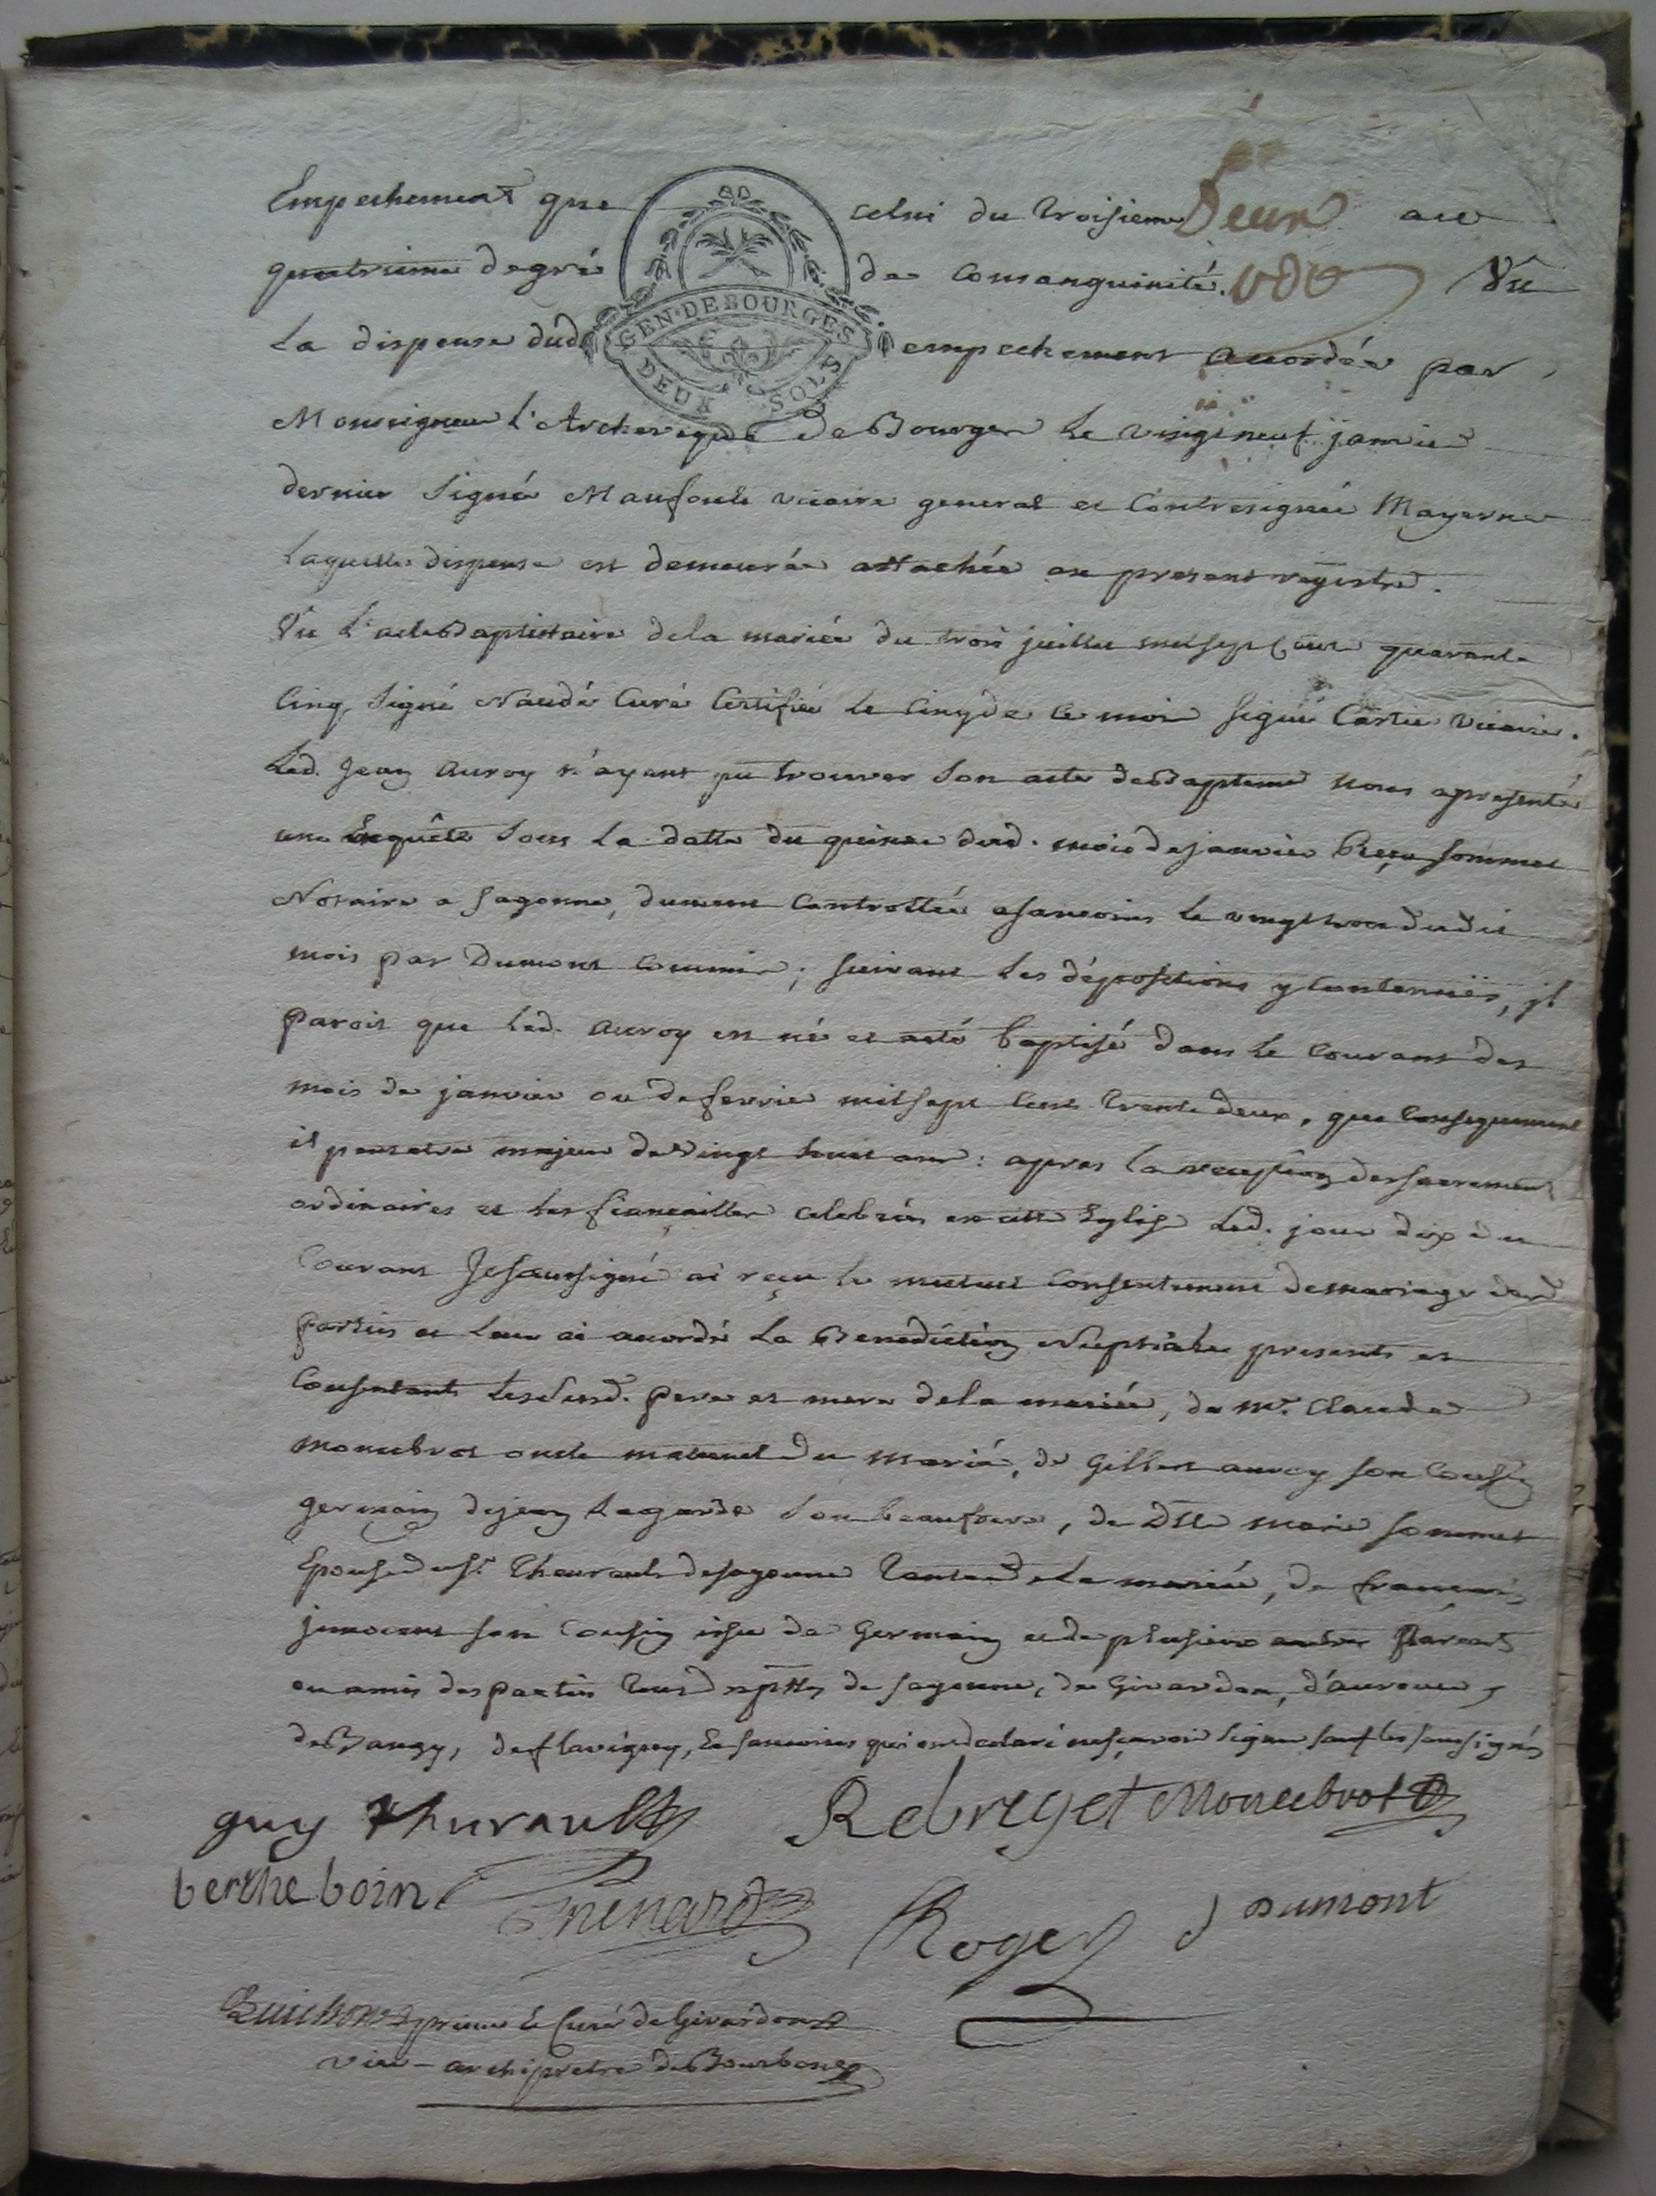 Empechement que celui du troisieme Deux au
quatrieme degré de Consanguinité. Vû
GEN. DE BOURGES
DEUX SOLS
La dispense dud empechement accordée par
Monseigneur L'Archeveque De Bourges Le vingt neuf janvier
dernier Signé vicaire general et Contresigné Mayerne
Laquelle dispense est demeurée attachée au present registre.
Vu L'acte Baptistaire de la mariée du trois juillet mil sept Cent quarante
Cinq Signé Naudé Curé Certifié le Cinq de ce mois signé Cartier Vicaire.
Led. Jean Auroy n'ayant pu trouver Son acte de Baptême nous a presenté
une Enquête Sous La datte du quinze dud. mois de janvier Reçu Sommet
Notaire a Sagonne, dument Controllée a Sancoins le vingt trois dudit
mois par Dumont Commis; suivant Les dépositions y Contenuës, jl
Paroit que Led. Auroy est né et a eté baptisé dans le Courant des
mois de janvier ou de fevrier mil sept Cent trente deux, que Consequemment
il peut etre majeur de Vingt huit ans: apres la reception des sacremens
ordinaires et les fiançailles celebrées en cette Eglise Led. jour dix du
Courant Je soussigné ai reçu le mutuel Consentement de mariage desd
Parties et Leur ai accordé La Benediction Nuptiale presents et
Consentants Lesdusd. pere et mere de la mariée, de Mr. Claude
Monicbrot oncle maternel Du Marié, de Gilbert auroy son Cousin
germain de jean Lagarde Son beaufrere, de Dlle Marie Sommet
Epouse du Sr. Thourault de Sagonne tante de la mariée, de françois
jnnocent son Cousin issu de Germain et de plusieurs autres Parents
ou amis des Parties tous de Sagonne, de Girardon, d'aurouer,
de Bangy, de flavigny, de Sancoins qui ont declaré ne sçavoir signer sauf les soussignés
guy thurault Rebreget Monicbrot
berthe boin Thenard Roger J Dumont
prieur le Curé de Girardon
vice-archipretre de Bourbon